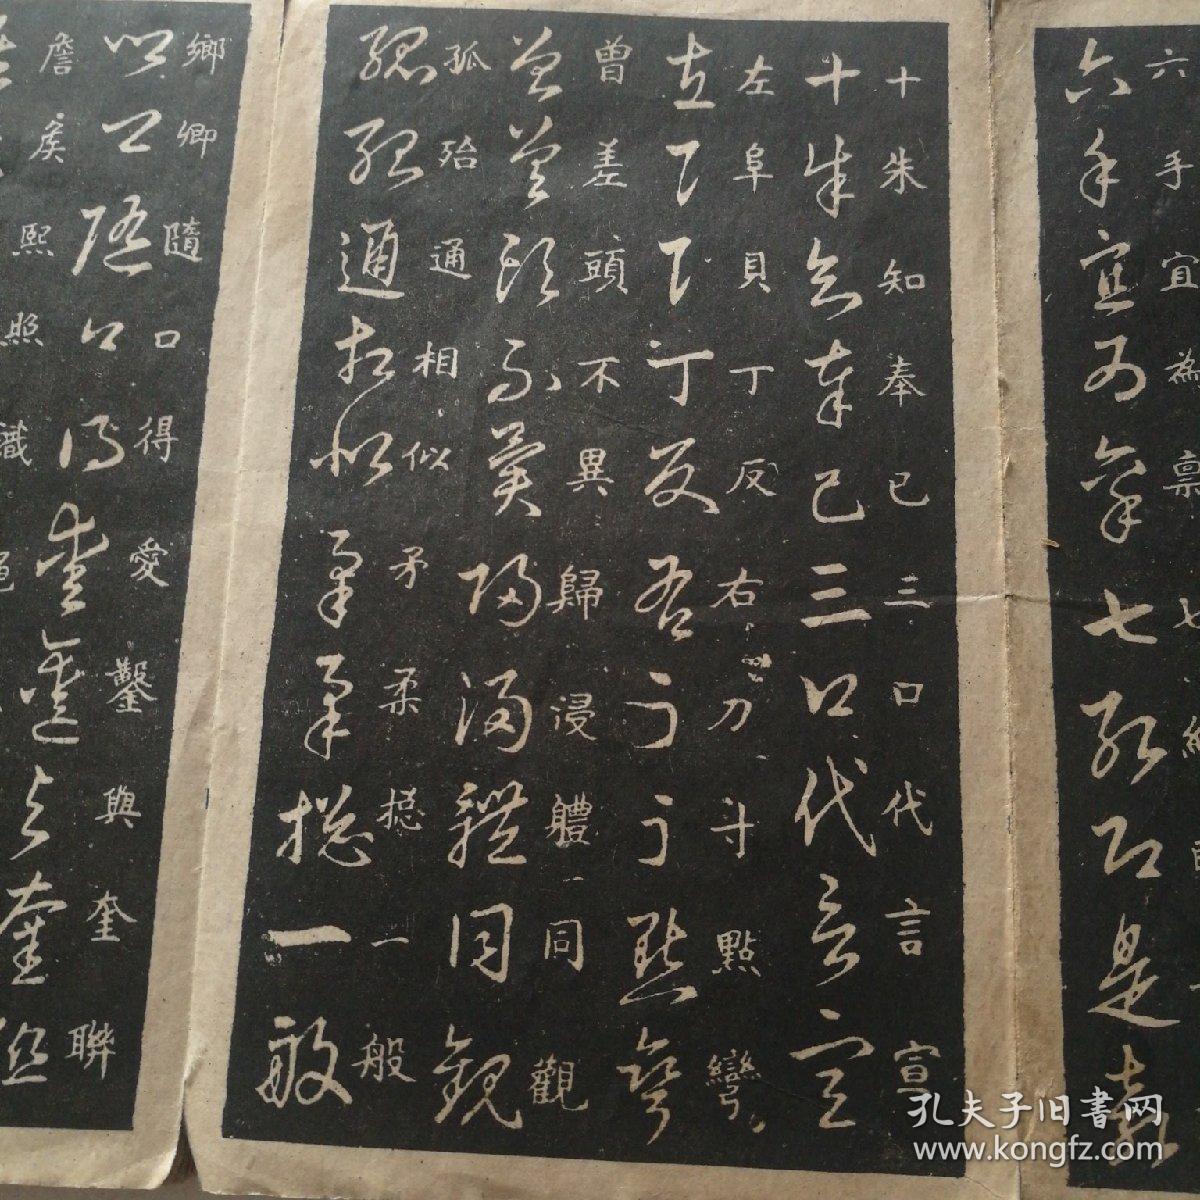 六手宜為禀七
十朱知奉已三口代言宣
左阜貝丁反右刀斗點彎
曾差頭不異歸浸體同觀
孤殆通相似矛柔揔一般
鄉卿隨口得愛鑿與奎聯
詹矦熙照識
孔夫子旧书网
www.kongfz.com